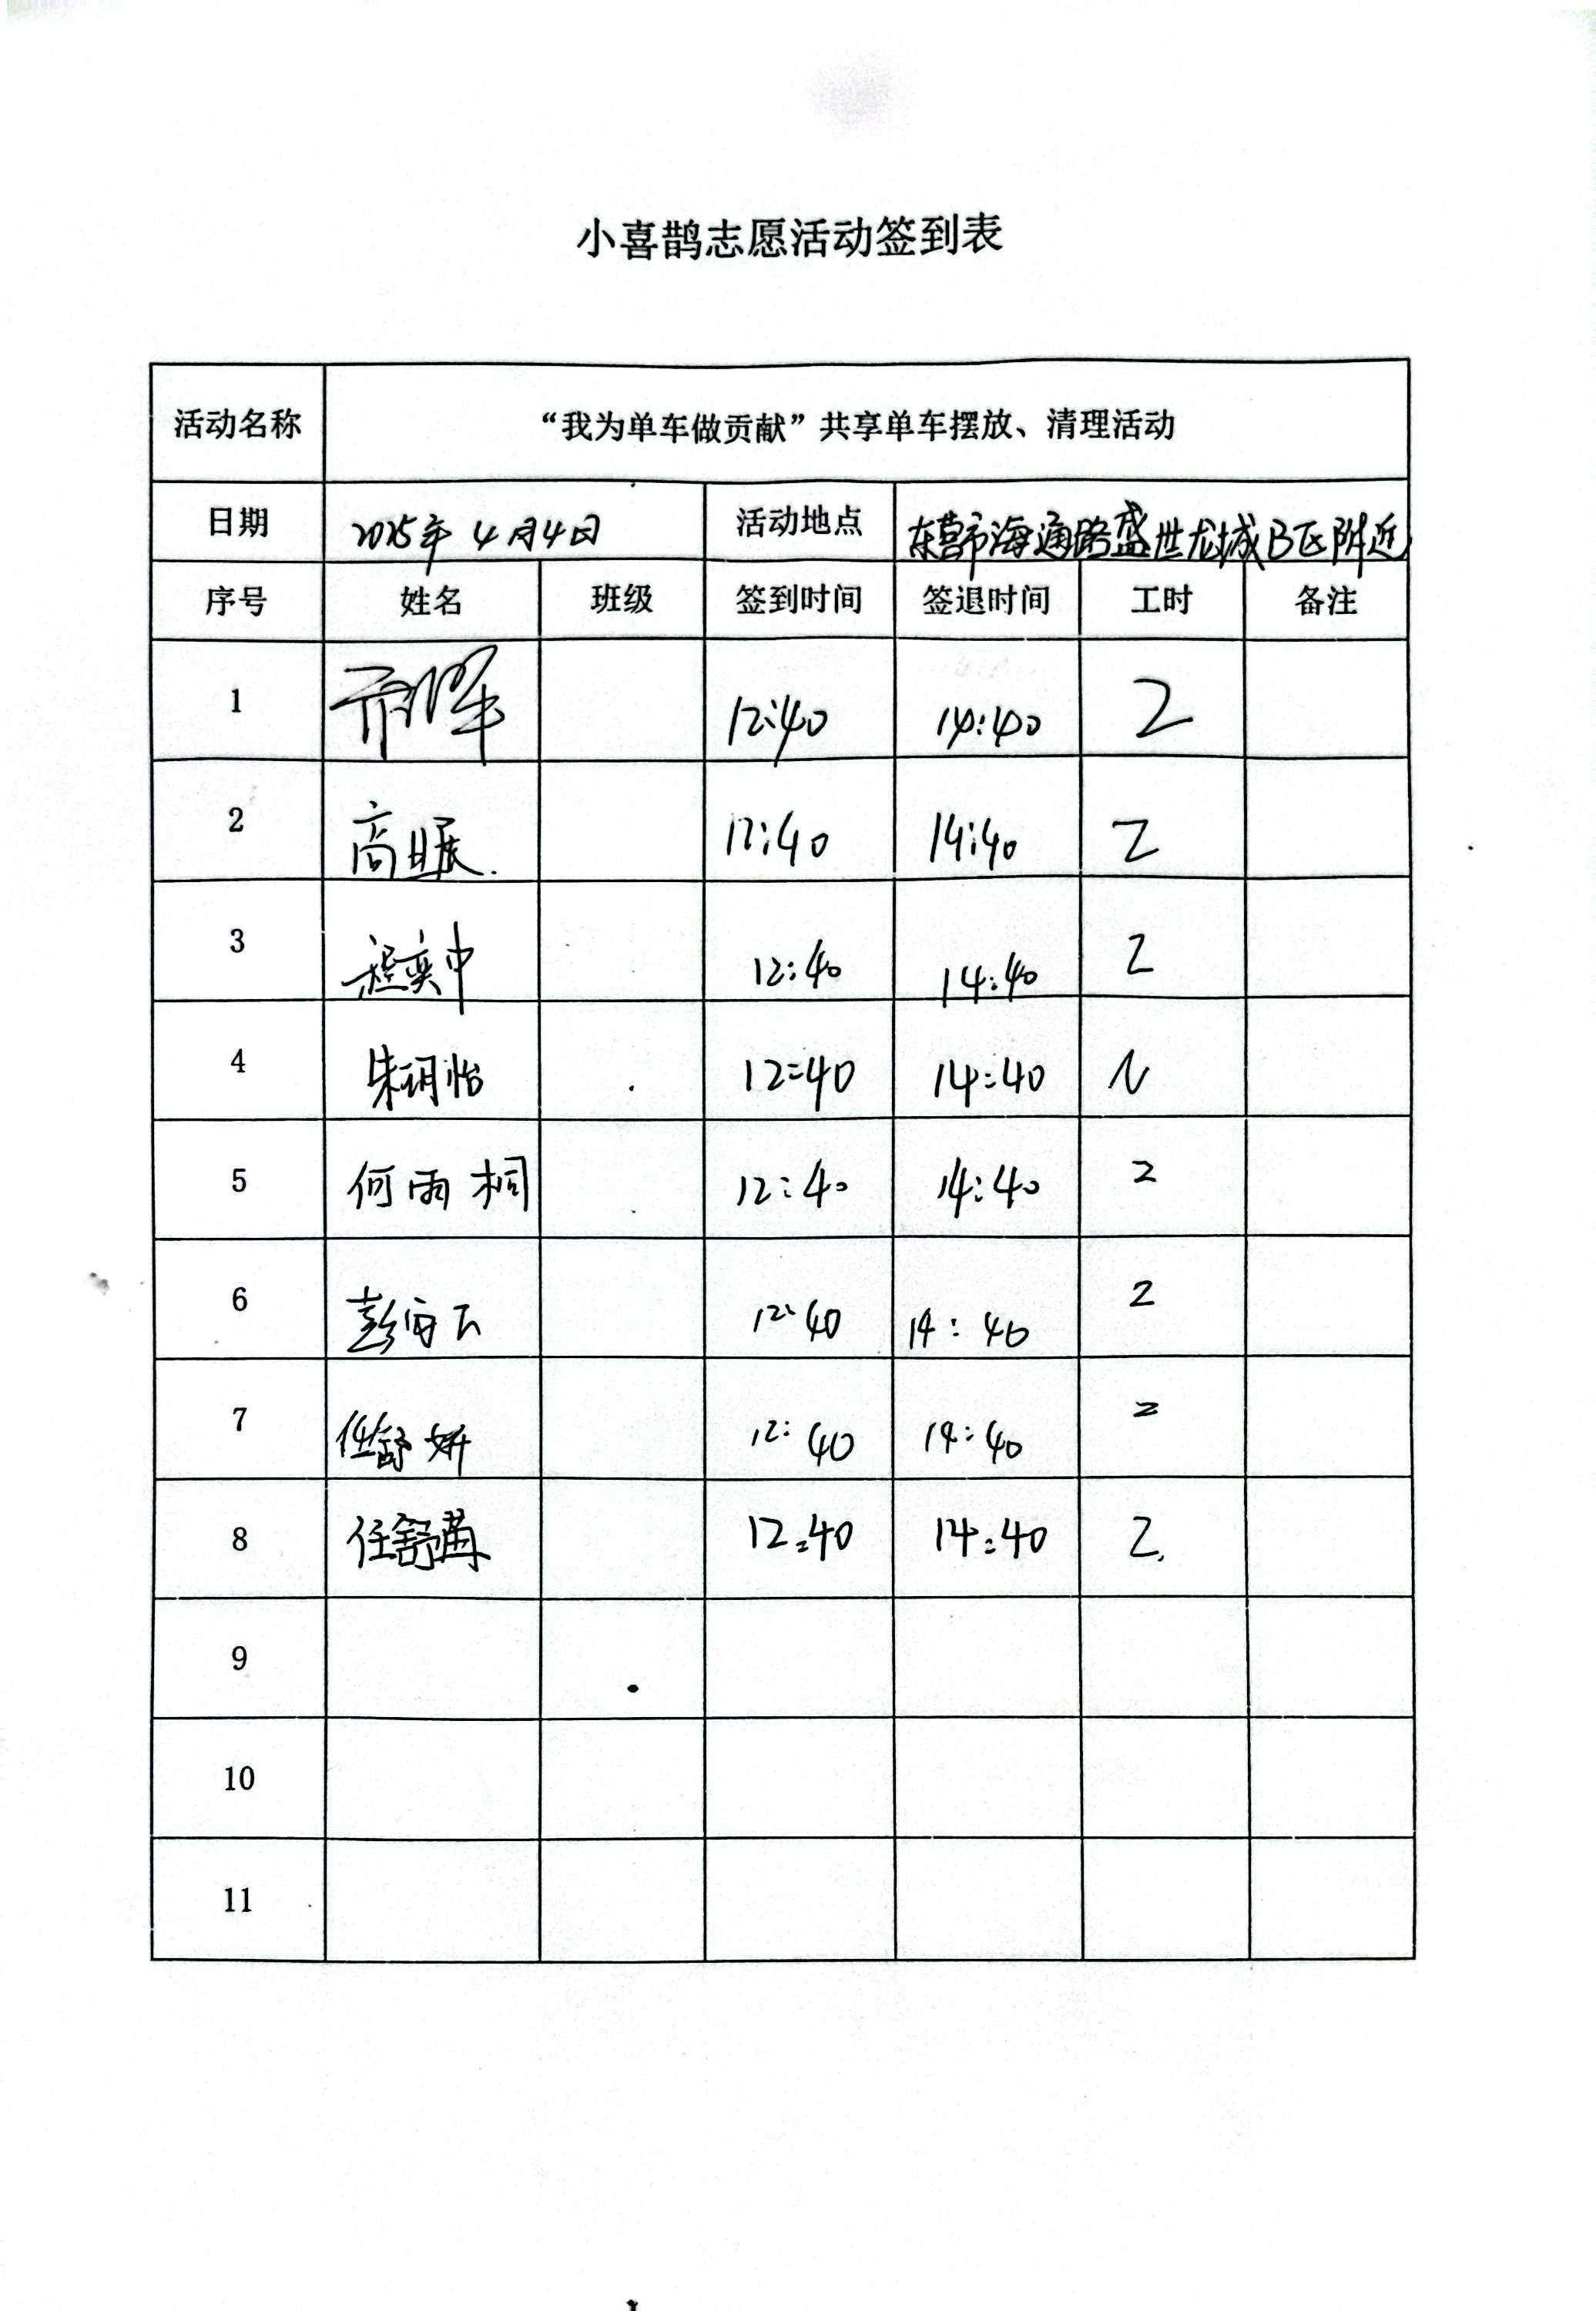 小喜鹊志愿活动签到表
活动名称 “我为单车做贡献”共享单车摆放、清理活动
日期 2025年4月4日 活动地点 东营市海通路盛世龙城B区附近
序号 姓名 班级 签到时间 签退时间 工时 备注
1 12:40 14:40 2
2 高 12:40 14:40 2
3 程奕中 12:40 14:40 2
4 朱玥怡 12:40 14:40 2
5 何雨桐 12:40 14:40 2
6 彭 12:40 14:40 2
7 任舒妍 12:40 14:40 2
8 任舒 12:40 14:40 2
9
10
11